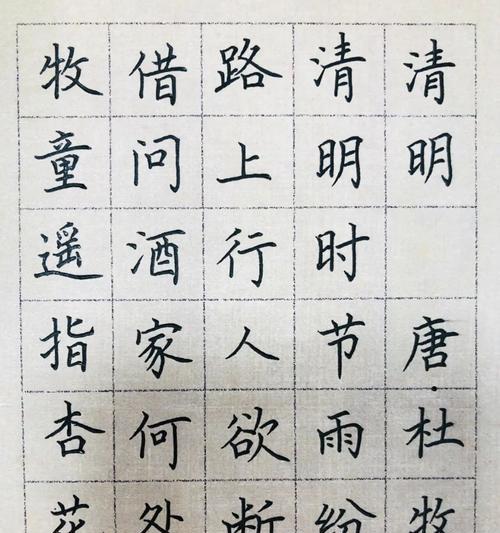 清明 唐·杜牧
清明时节雨纷
路上行人欲断
借问酒家何处
牧童遥指杏花